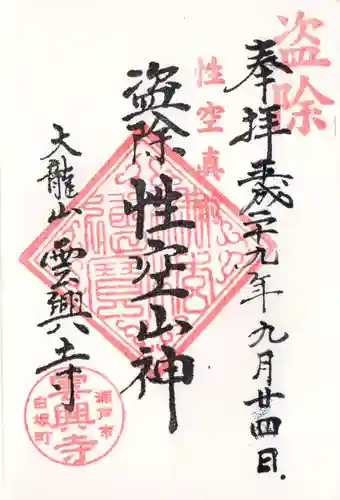 盗除
奉拝 平成二十九年九月廿四日
性空真
盗除 性空山神
大龍山 雲興寺
瀬戸市
雲興寺
白坂町